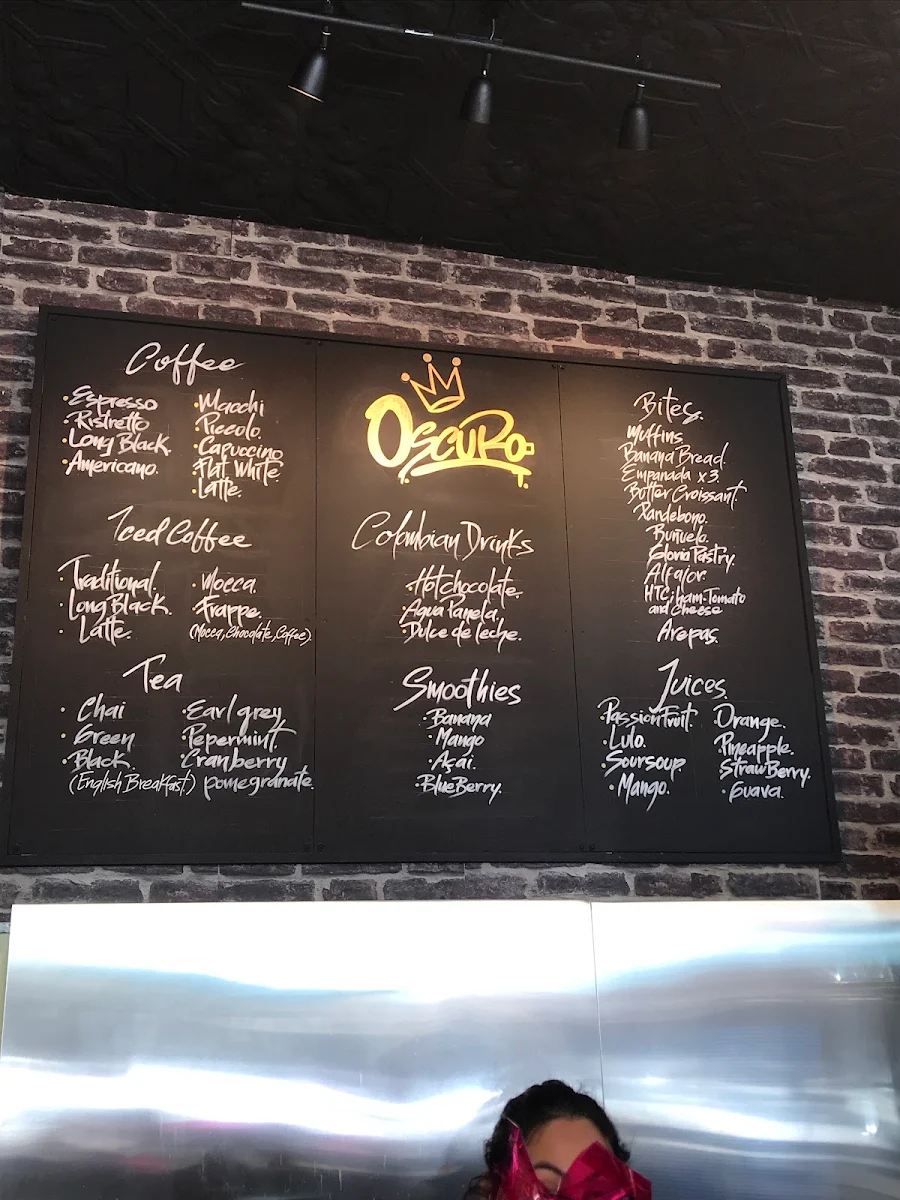 Coffee
·Espresso
·Ristretto
·Long Black.
·Americano.
·Macchi
·Piccolo.
·Capuccino
·Flat White.
·Latte.
Iced Coffee
·Traditional.
·Long Black.
·Latte.
·Mocca.
·Frappe.
(Mocca, Chocolate, Coffee).
Tea
·Chai
·Green
·Black.
(English Breakfast)
·Earl grey
·Pepermint.
·Cranberry
pomegranate.
Oscuro.
Colombian Drinks
·Hot chocolate.
·Agua Panela.
·Dulce de leche.
Smoothies
·Banana
·Mango
·Açai.
·BlueBerry.
Bites.
Muffins
Banana Bread.
Empanada x 3.
Botter Croissant
Pandebono.
Buñuelo.
Gloria Pastry.
Alfajor.
HTC; ham-Tomato
and cheese
Arepas.
Juices.
·Passion Fruit.
·Lulo.
·Soursoup.
·Mango.
Orange.
Pineapple.
StrawBerry.
·Guava.